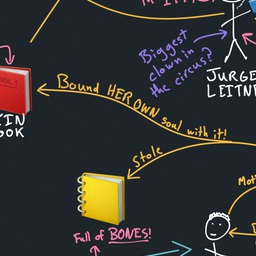 Biggest
clown in
the circus?
JURGE
LEITNE
Bound HER OWN soul with it!
KIN
OOK
Stole
Full of BONES!